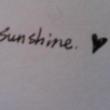 sunshine. ♥